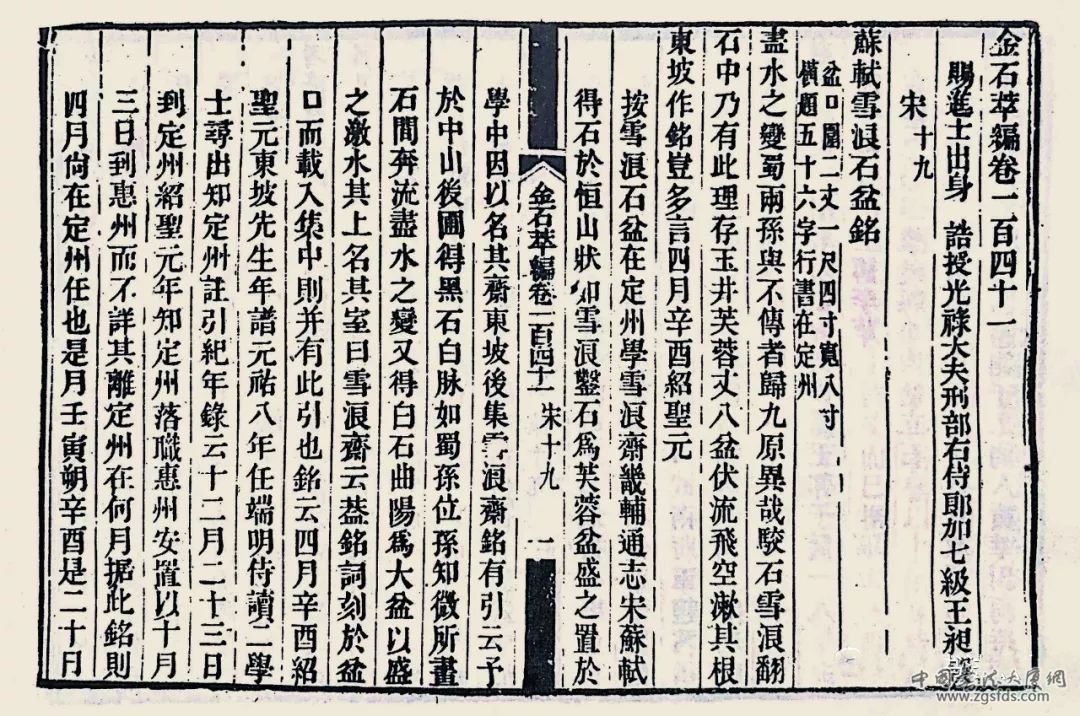 金石萃編卷一百四十一
賜進士出身　誥授光祿大夫刑部右侍郎加七級王昶譔
宋十九
蘇軾雪浪石盆銘
盆口圍二丈一尺四寸寬八寸
橫題五十六字行書在定州
盡水之變蜀兩孫與不傳者歸九原異哉駮石雪浪翻
石中乃有此理存玉井芙蓉丈八盆伏流飛空漱其根
東坡作銘豈多言四月辛酉紹聖元
按雪浪石盆在定州學雪浪齋畿輔通志宋蘇軾
得石於恒山狀如雪浪鑿石為芙蓉盆盛之置於
金石萃編卷一百四十一　宋十九　一
學中因以名其齋東坡後集雪浪齋銘有引云予
於中山後圃得黑石白脉如蜀孫位孫知微所畫
石間奔流盡水之變又得白石曲陽為大盆以盛
之激水其上名其室曰雪浪齋云葢銘詞刻於盆
口而載入集中則并有此引也銘云四月辛酉紹
聖元東坡先生年譜元祐八年任端明侍讀二學
士尋出知定州註引紀年錄云十二月二十三日
到定州紹聖元年知定州落職惠州安置以十月
三日到惠州而不詳其離定州在何月据此銘則
四月尙在定州任也是月壬寅朔辛酉是二十日
www.zgsfds.com